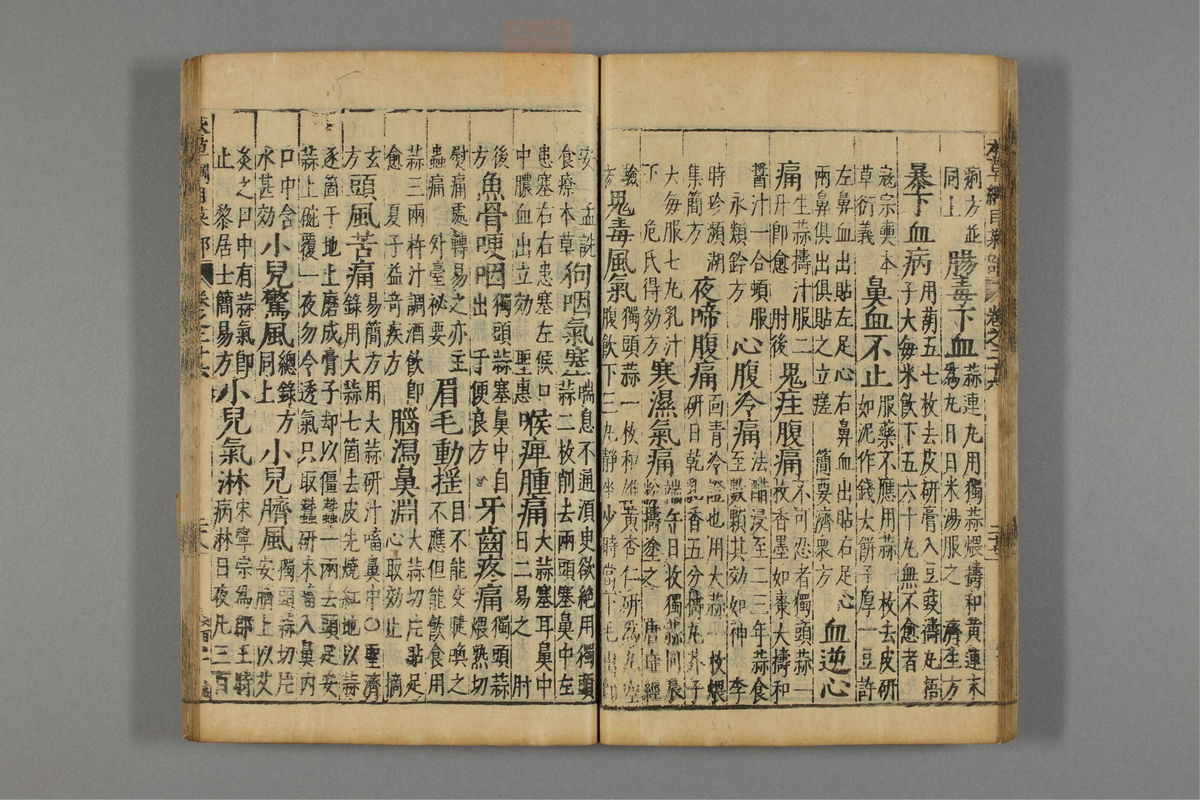 劑方並同上 腸毒下血 蒜連丸用獨蒜煨擣和黃連末為丸日日米湯服之 濟生方
暴下血病 用葫五七枚去皮研膏入豆豉擣丸梧子大每米飲下五六十丸無不愈者
寇宗奭本草衍義 鼻血不止 服藥不應用蒜一枚去皮研如泥作錢大餅子厚一豆許
左鼻血出貼左足心右鼻血出貼右足心兩鼻俱出俱貼之立瘥 簡要濟衆方 血逆心
痛 生蒜擣汁服二升即愈 肘後 鬼疰腹痛 不可忍者獨頭蒜一枚香墨如棗大擣和
醬汁一合頓服 永類鈐方 心腹冷痛 法醋浸至二三年蒜食至數顆其效如神 李
時珍瀕湖集簡方 夜啼腹痛 面青冷證也用大蒜一枚煨研日乾乳香五分擣丸芥子
大每服七丸乳汁下 危氏得効方 寒濕氣痛 端午日收獨蒜同辰粉擣塗之 唐瑤經
驗方 鬼毒風氣 獨頭蒜一枚和雄黃杏仁研為丸空腹飲下三丸靜坐少時當下毛出即
安 孟詵食療本草 狗咽氣塞 喘息不通須臾欲絶用獨頭蒜二枚削去兩頭塞鼻中左
患塞右右患塞左候口中膿血出立効 聖惠 喉痺腫痛 大蒜塞耳鼻中日二易之 肘
後方 魚骨哽咽 獨頭蒜塞鼻中自出 十便良方 牙齒疼痛 獨頭蒜煨熟切
熨痛處轉易之亦主蟲痛 外臺祕要 眉毛動搖 目不能交睫喚之不應但能飲食用
蒜三兩杵汁調酒飲即愈 夏子益奇疾方 腦瀉鼻淵 大蒜切片貼足心取効止 摘
玄方 頭風苦痛 易簡方用大蒜研汁㗜鼻中○聖濟錄用大蒜七箇去皮先燒紅地以蒜
逐箇于地上磨成膏子却以僵蠶一兩去頭足安蒜上碗覆一夜勿令透氣只取蠶研末㗜入鼻內
口中含水甚効 小兒驚風 同上總錄方 小兒臍風 獨頭蒜切片安臍上以艾
灸之口中有蒜氣即止 黎居士簡易方 小兒氣淋 宋寧宗為郡王時病淋日夜凡三百